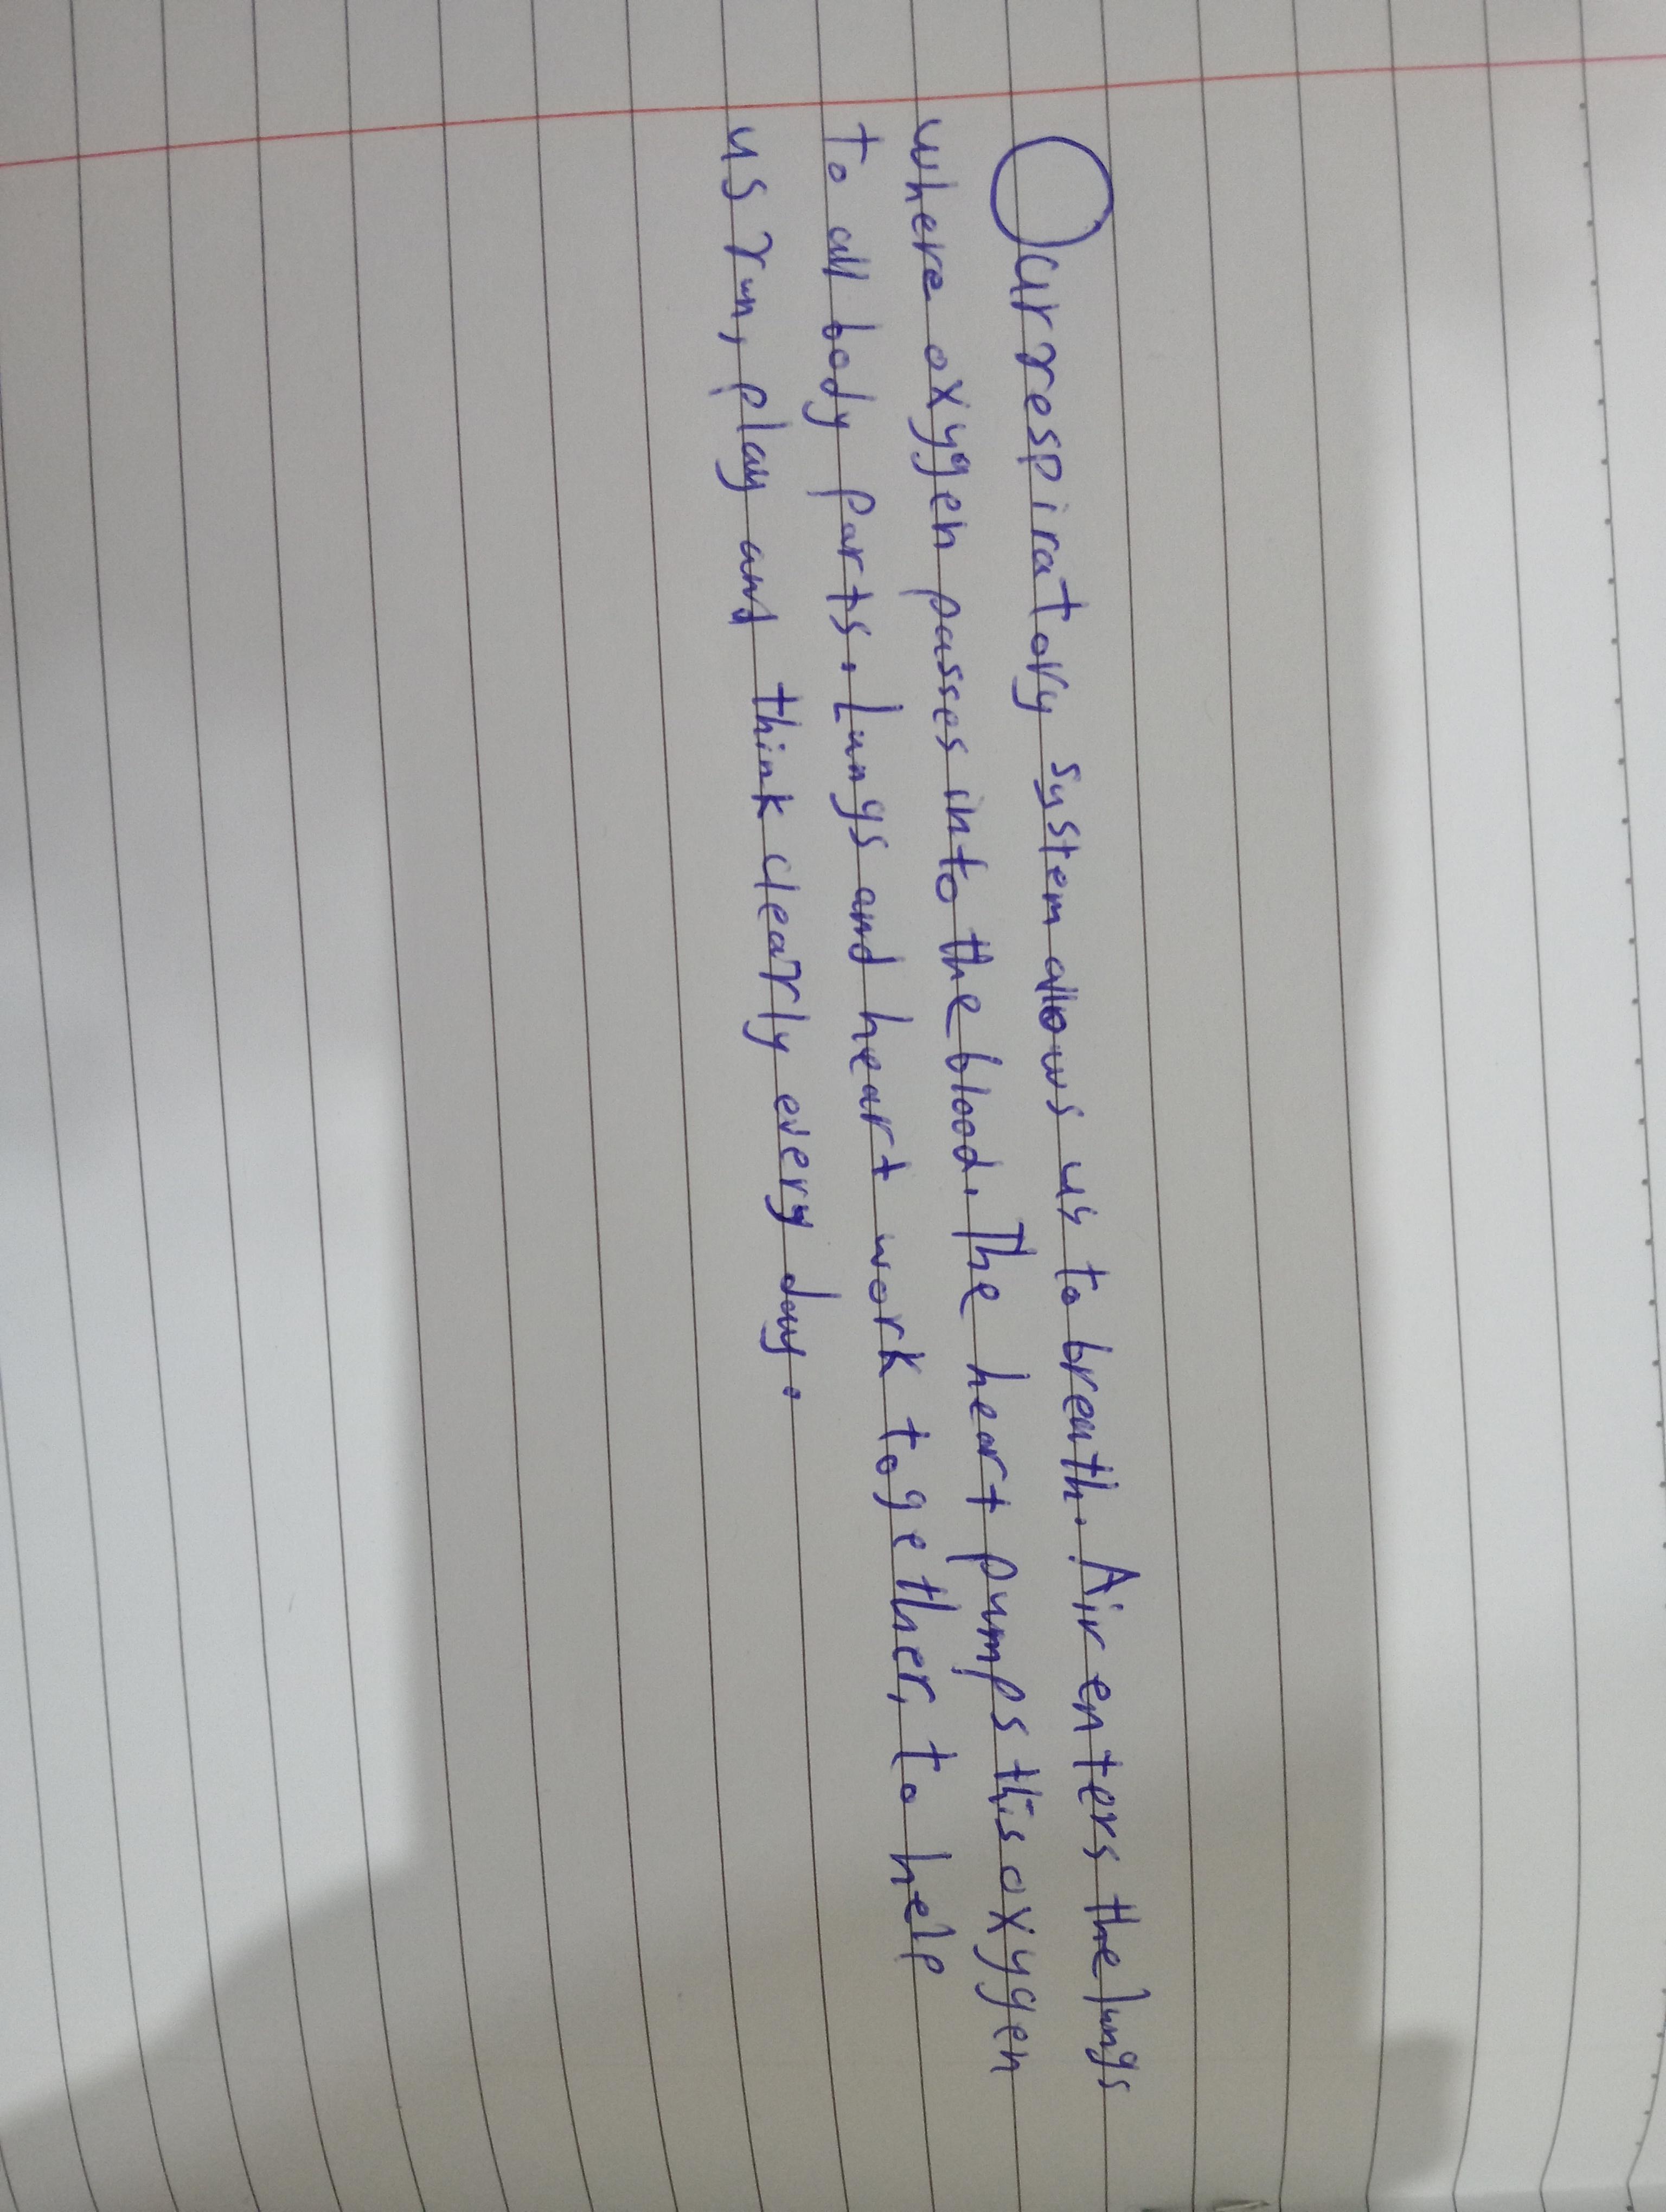 Our respiratory system allows us to breath. Air enters the lungs
where oxygen passes into the blood. The heart pumps this oxygen
to all body parts. Lungs and heart work together, to help
us run, play and think clearly every day.